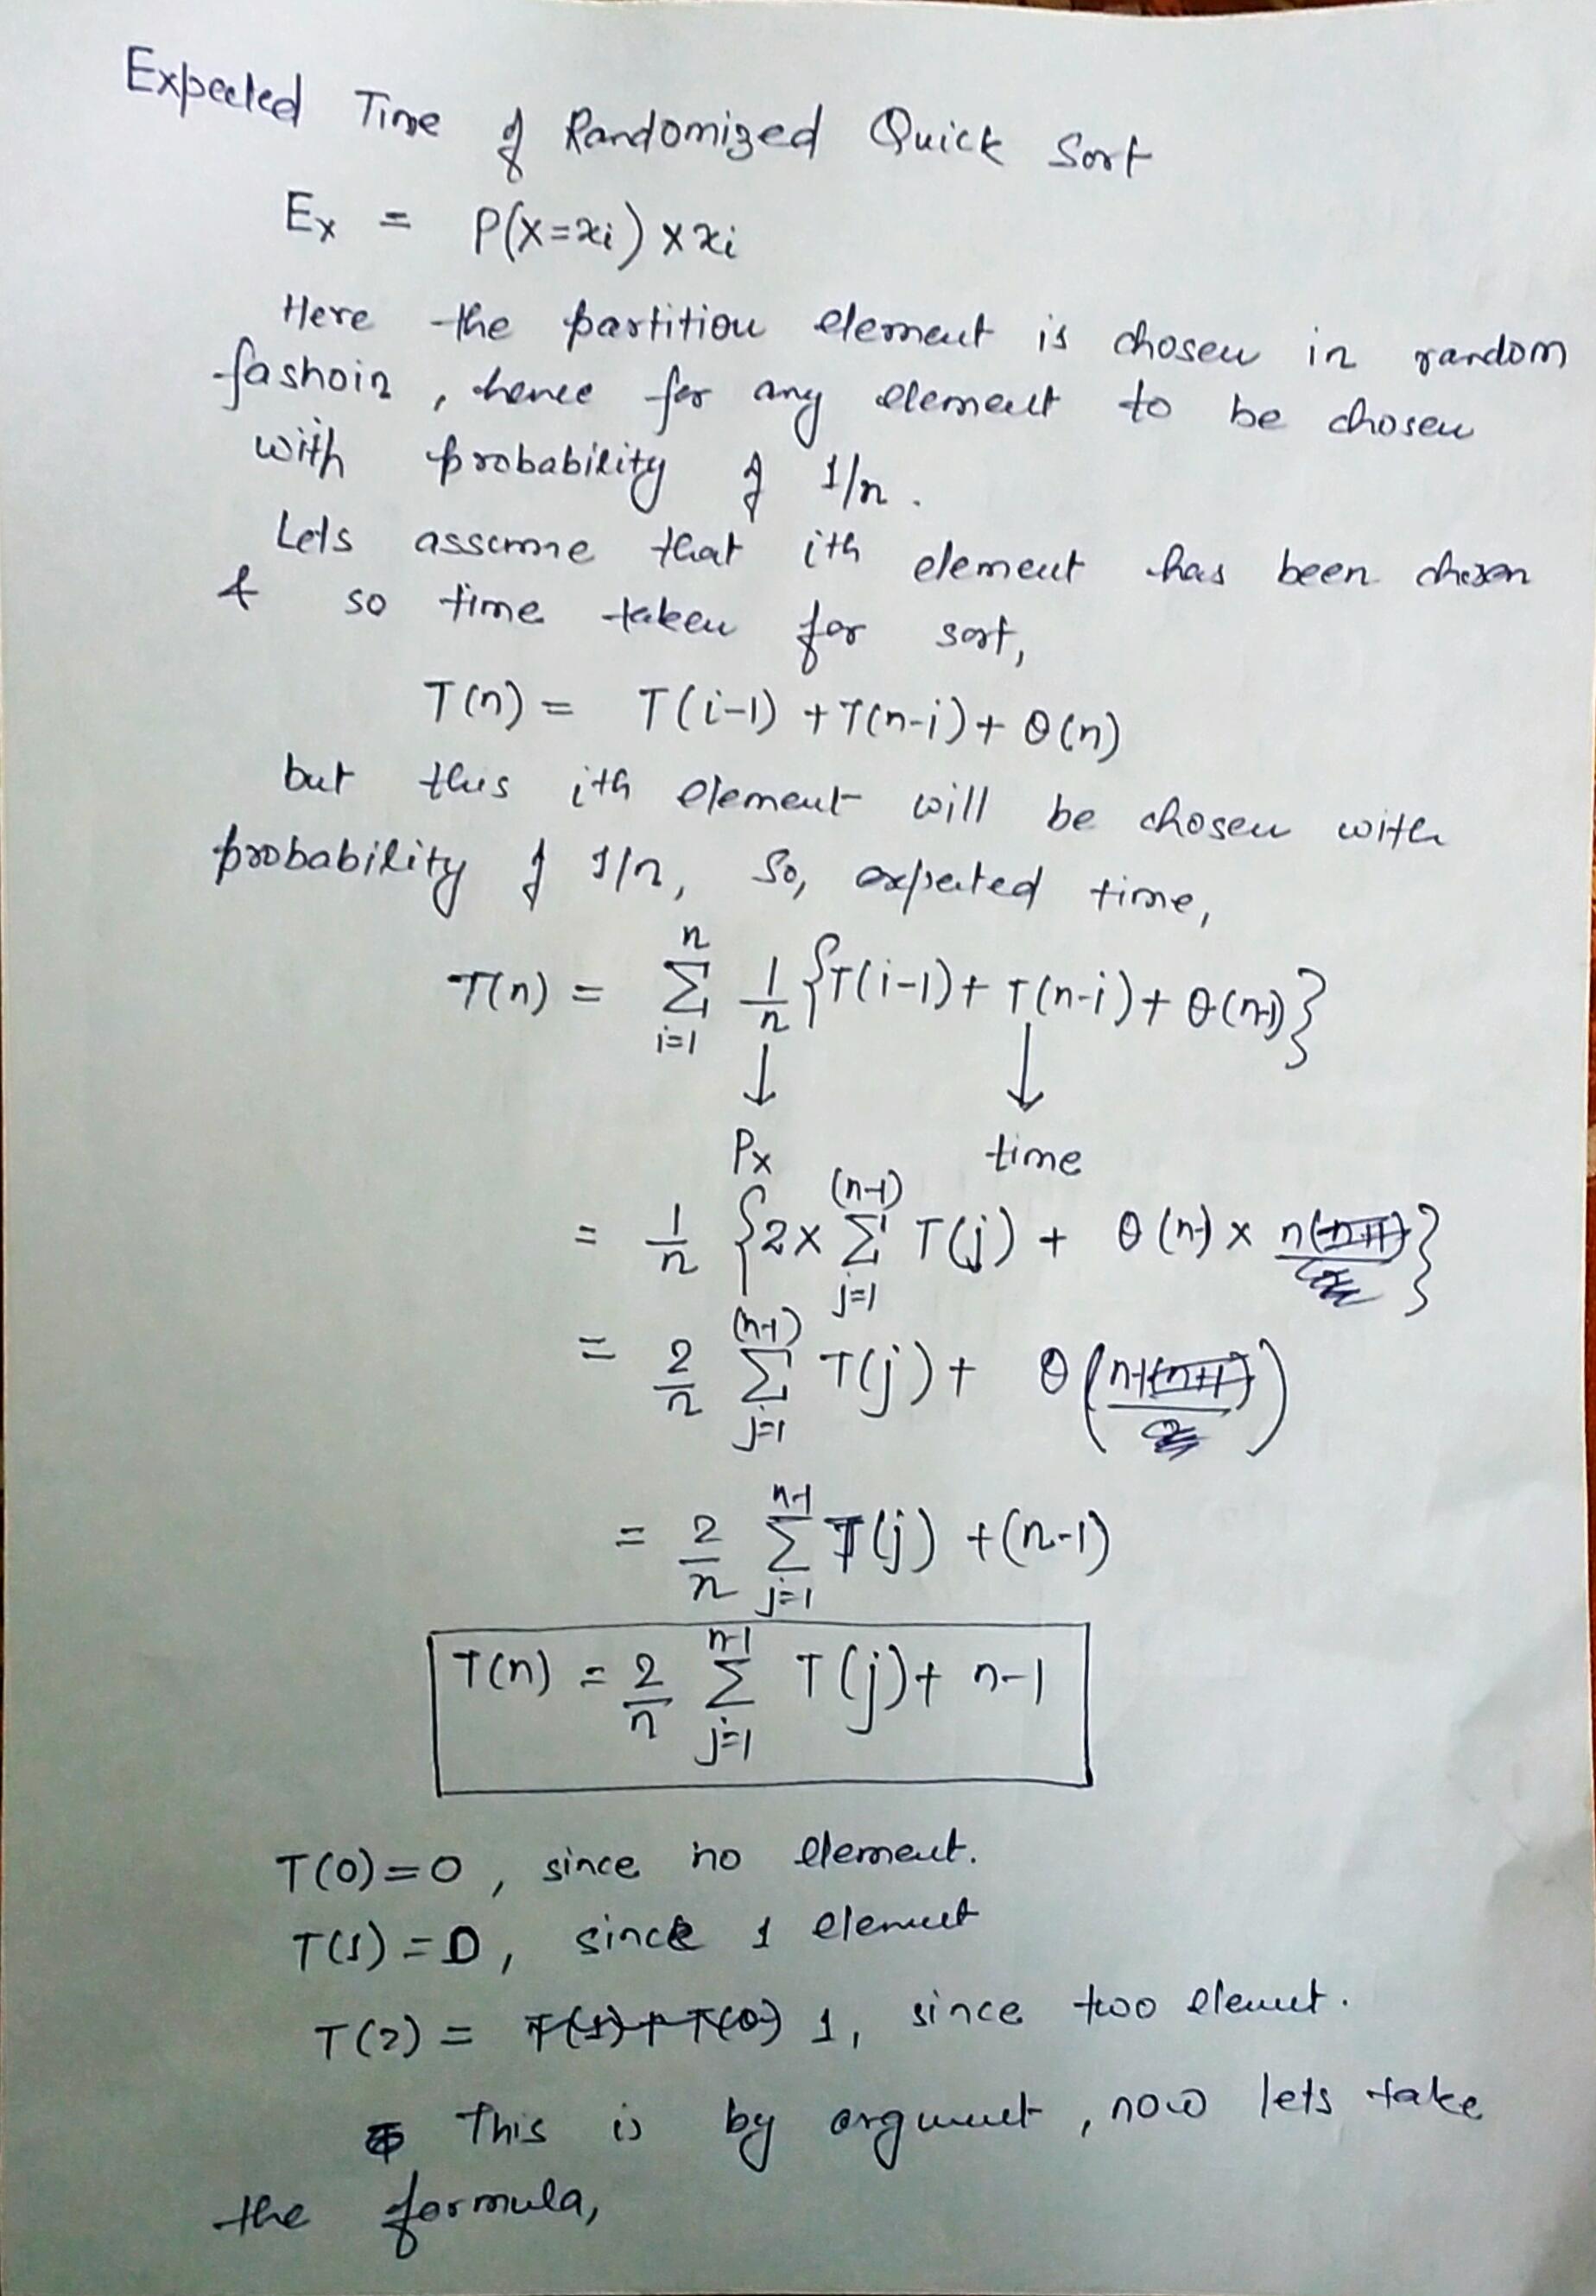 Expected Time of Randomized Quick Sort
Ex = P(X=xi) × xi
Here the partition element is chosen in random
fashoin, hence for any element to be chosen
with probability of 1/n.
Lets assume that ith element has been chosen
& so time taken for sort,
T(n) = T(i-1) + T(n-i) + θ(n)
but this ith element will be chosen with
probability of 1/n, So, expected time,
T(n) = n Σ i=1 1/n {T(i-1) + T(n-i) + θ(n-1)}
↓ ↓
Px time
= 1/n {2× (n-1) Σ j=1 T(j) + θ(n-1) × n}
= 2/n (n-1) Σ j=1 T(j) + θ(n-1)
= 2/n n-1 Σ j=1 T(j) + (n-1)
T(n) = 2/n n-1 Σ j=1 T(j) + n-1
T(0) = 0, since no element.
T(1) = 0, since 1 element
T(2) = T(1)+T(0) 1, since two element.
This is by argument, now lets take
the formula,